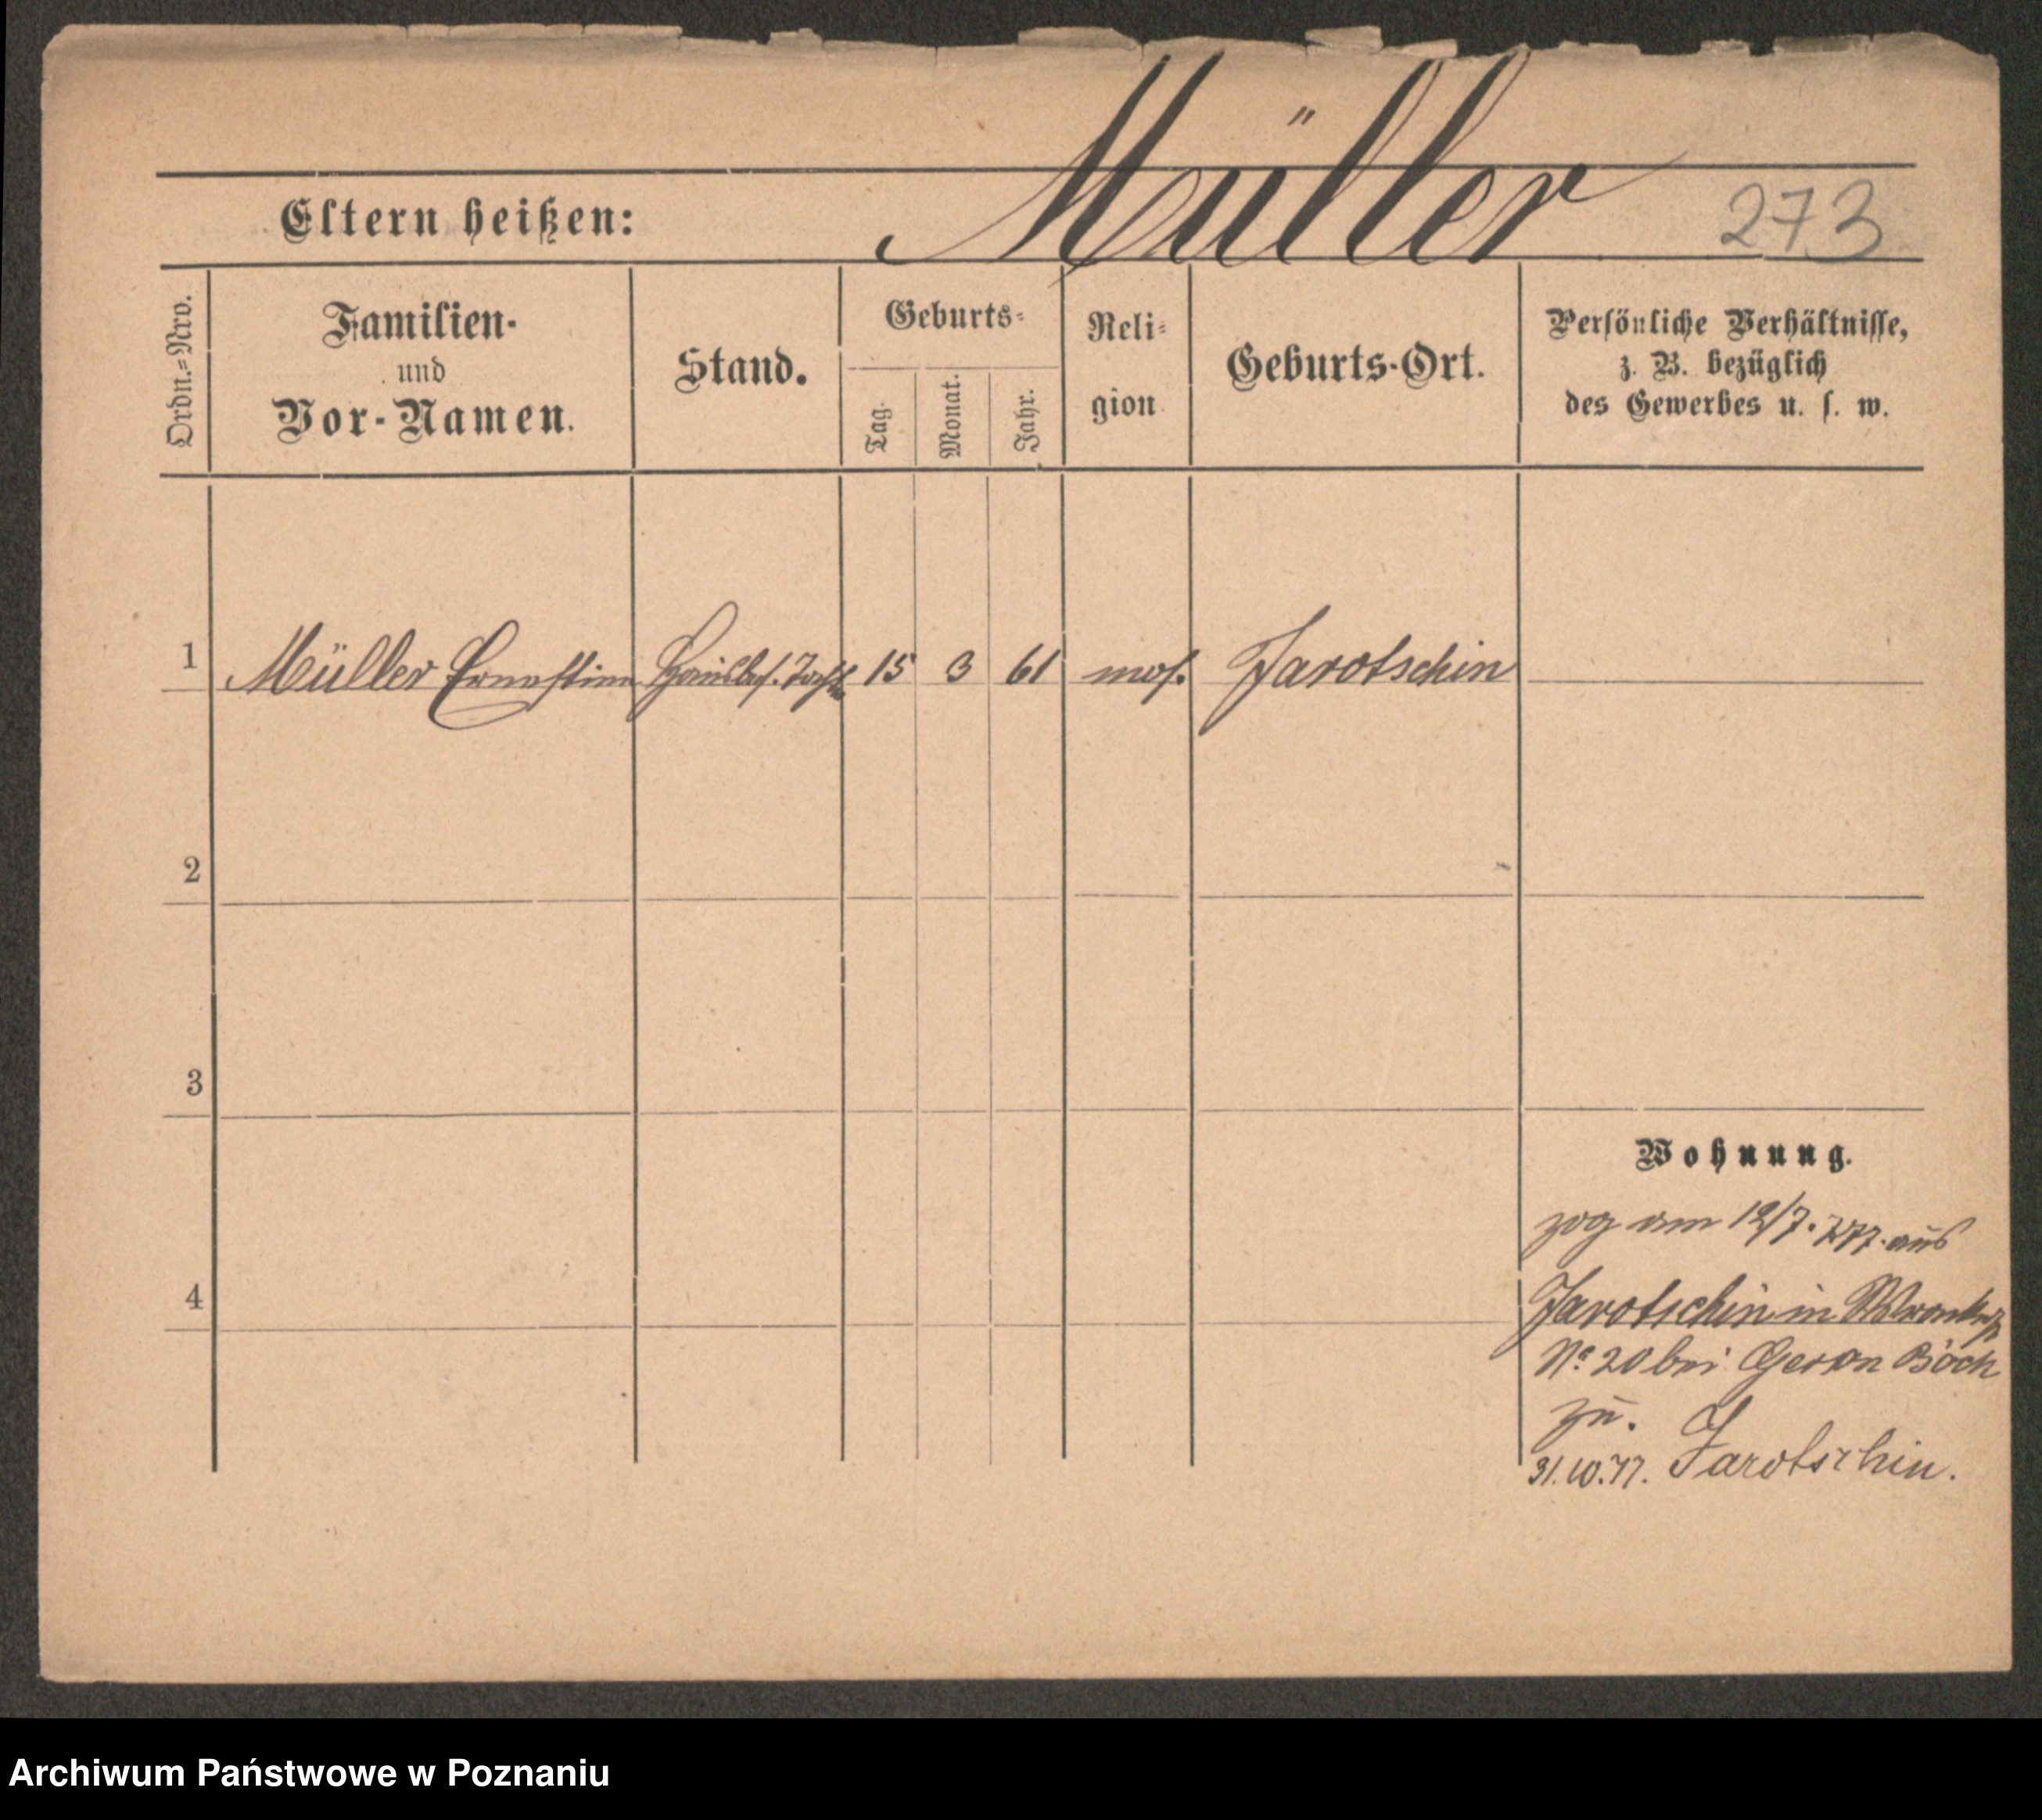 Müller
Eltern heißen: 273
Ordn.=Nro.
Familien-
und
Vor-Namen.
Stand.
Geburts-
Tag. Monat. Jahr.
Reli-
gion
Geburts-Ort.
Persönliche Verhältnisse,
z. B. bezüglich
des Gewerbes u. s. w.
1 Müller Ernestine Hausbes. Tocht. 15 3 61 mos. Jarotschin
2
3
Wohnung.
zog am 12/7. 77. aus
4
Jarotschin in Wronkerstr
No. 20 bei Gerson
zu.
31.10.77. Jarotschin.
Archiwum Państwowe w Poznaniu